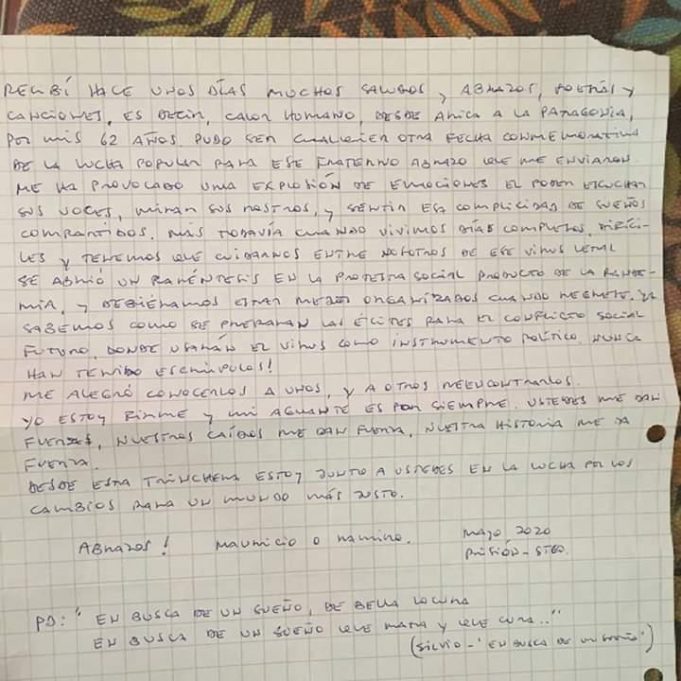 RECIBÍ HACE UNOS DÍAS MUCHOS SALUDOS, ABRAZOS, POEMAS Y
CANCIONES, ES DECIR, CALOR HUMANO, DESDE ARICA A LA PATAGONIA,
POR MIS 62 AÑOS PUDO SER CUALQUIER OTRA FECHA CONMEMORATIVA
DE LA LUCHA POPULAR PARA ESE FRATERNO ABRAZO QUE ME ENVIARON
ME HA PROVOCADO UNA EXPLOSIÓN DE EMOCIONES EL PODER ESCUCHAR
SUS VOCES, MIRAR SUS ROSTROS, Y SENTIR ESA COMPLICIDAD DE SUEÑOS
COMPARTIDOS, MÁS TODAVÍA CUANDO VIVIMOS DÍAS COMPLEJOS, DIFÍCI-
LES Y TENEMOS QUE CUIDARNOS ENTRE NOSOTROS DE ESE VIRUS LETAL
SE ABRIÓ UN PARÉNTESIS EN LA PROTESTA SOCIAL PRODUCTO DE LA PANDE-
MIA, Y DEBIÉRAMOS ESTAR MEJOR ORGANIZADOS CUANDO REGRESE, YA
SABEMOS COMO SE PREPARAN LAS ÉLITES PARA EL CONFLICTO SOCIAL
FUTURO, DONDE USARÁN EL VIRUS COMO INSTRUMENTO POLÍTICO, NUNCA
HAN TENIDO ESCRÚPULOS!
ME ALEGRÓ CONOCERLOS A UNOS, Y A OTROS REENCONTRARLOS.
YO ESTOY FIRME Y MI AGUANTE ES POR SIEMPRE. USTEDES ME DAN
FUERZAS, NUESTROS CAÍDOS ME DAN FUERZA, NUESTRA HISTORIA ME DA
FUERZA.
DESDE ESTA TRINCHERA ESTOY JUNTO A USTEDES EN LA LUCHA POR LOS
CAMBIOS PARA UN MUNDO MÁS JUSTO.
ABRAZOS! MAURICIO O RAMIRO. MAYO, 2020
PRISIÓN - STGO.
PD: "EN BUSCA DE UN SUEÑO, DE BELLA LOCURA
EN BUSCA DE UN SUEÑO QUE MATA Y QUE CURA.."
(SILVIO - 'EN BUSCA DE UN SUEÑO')